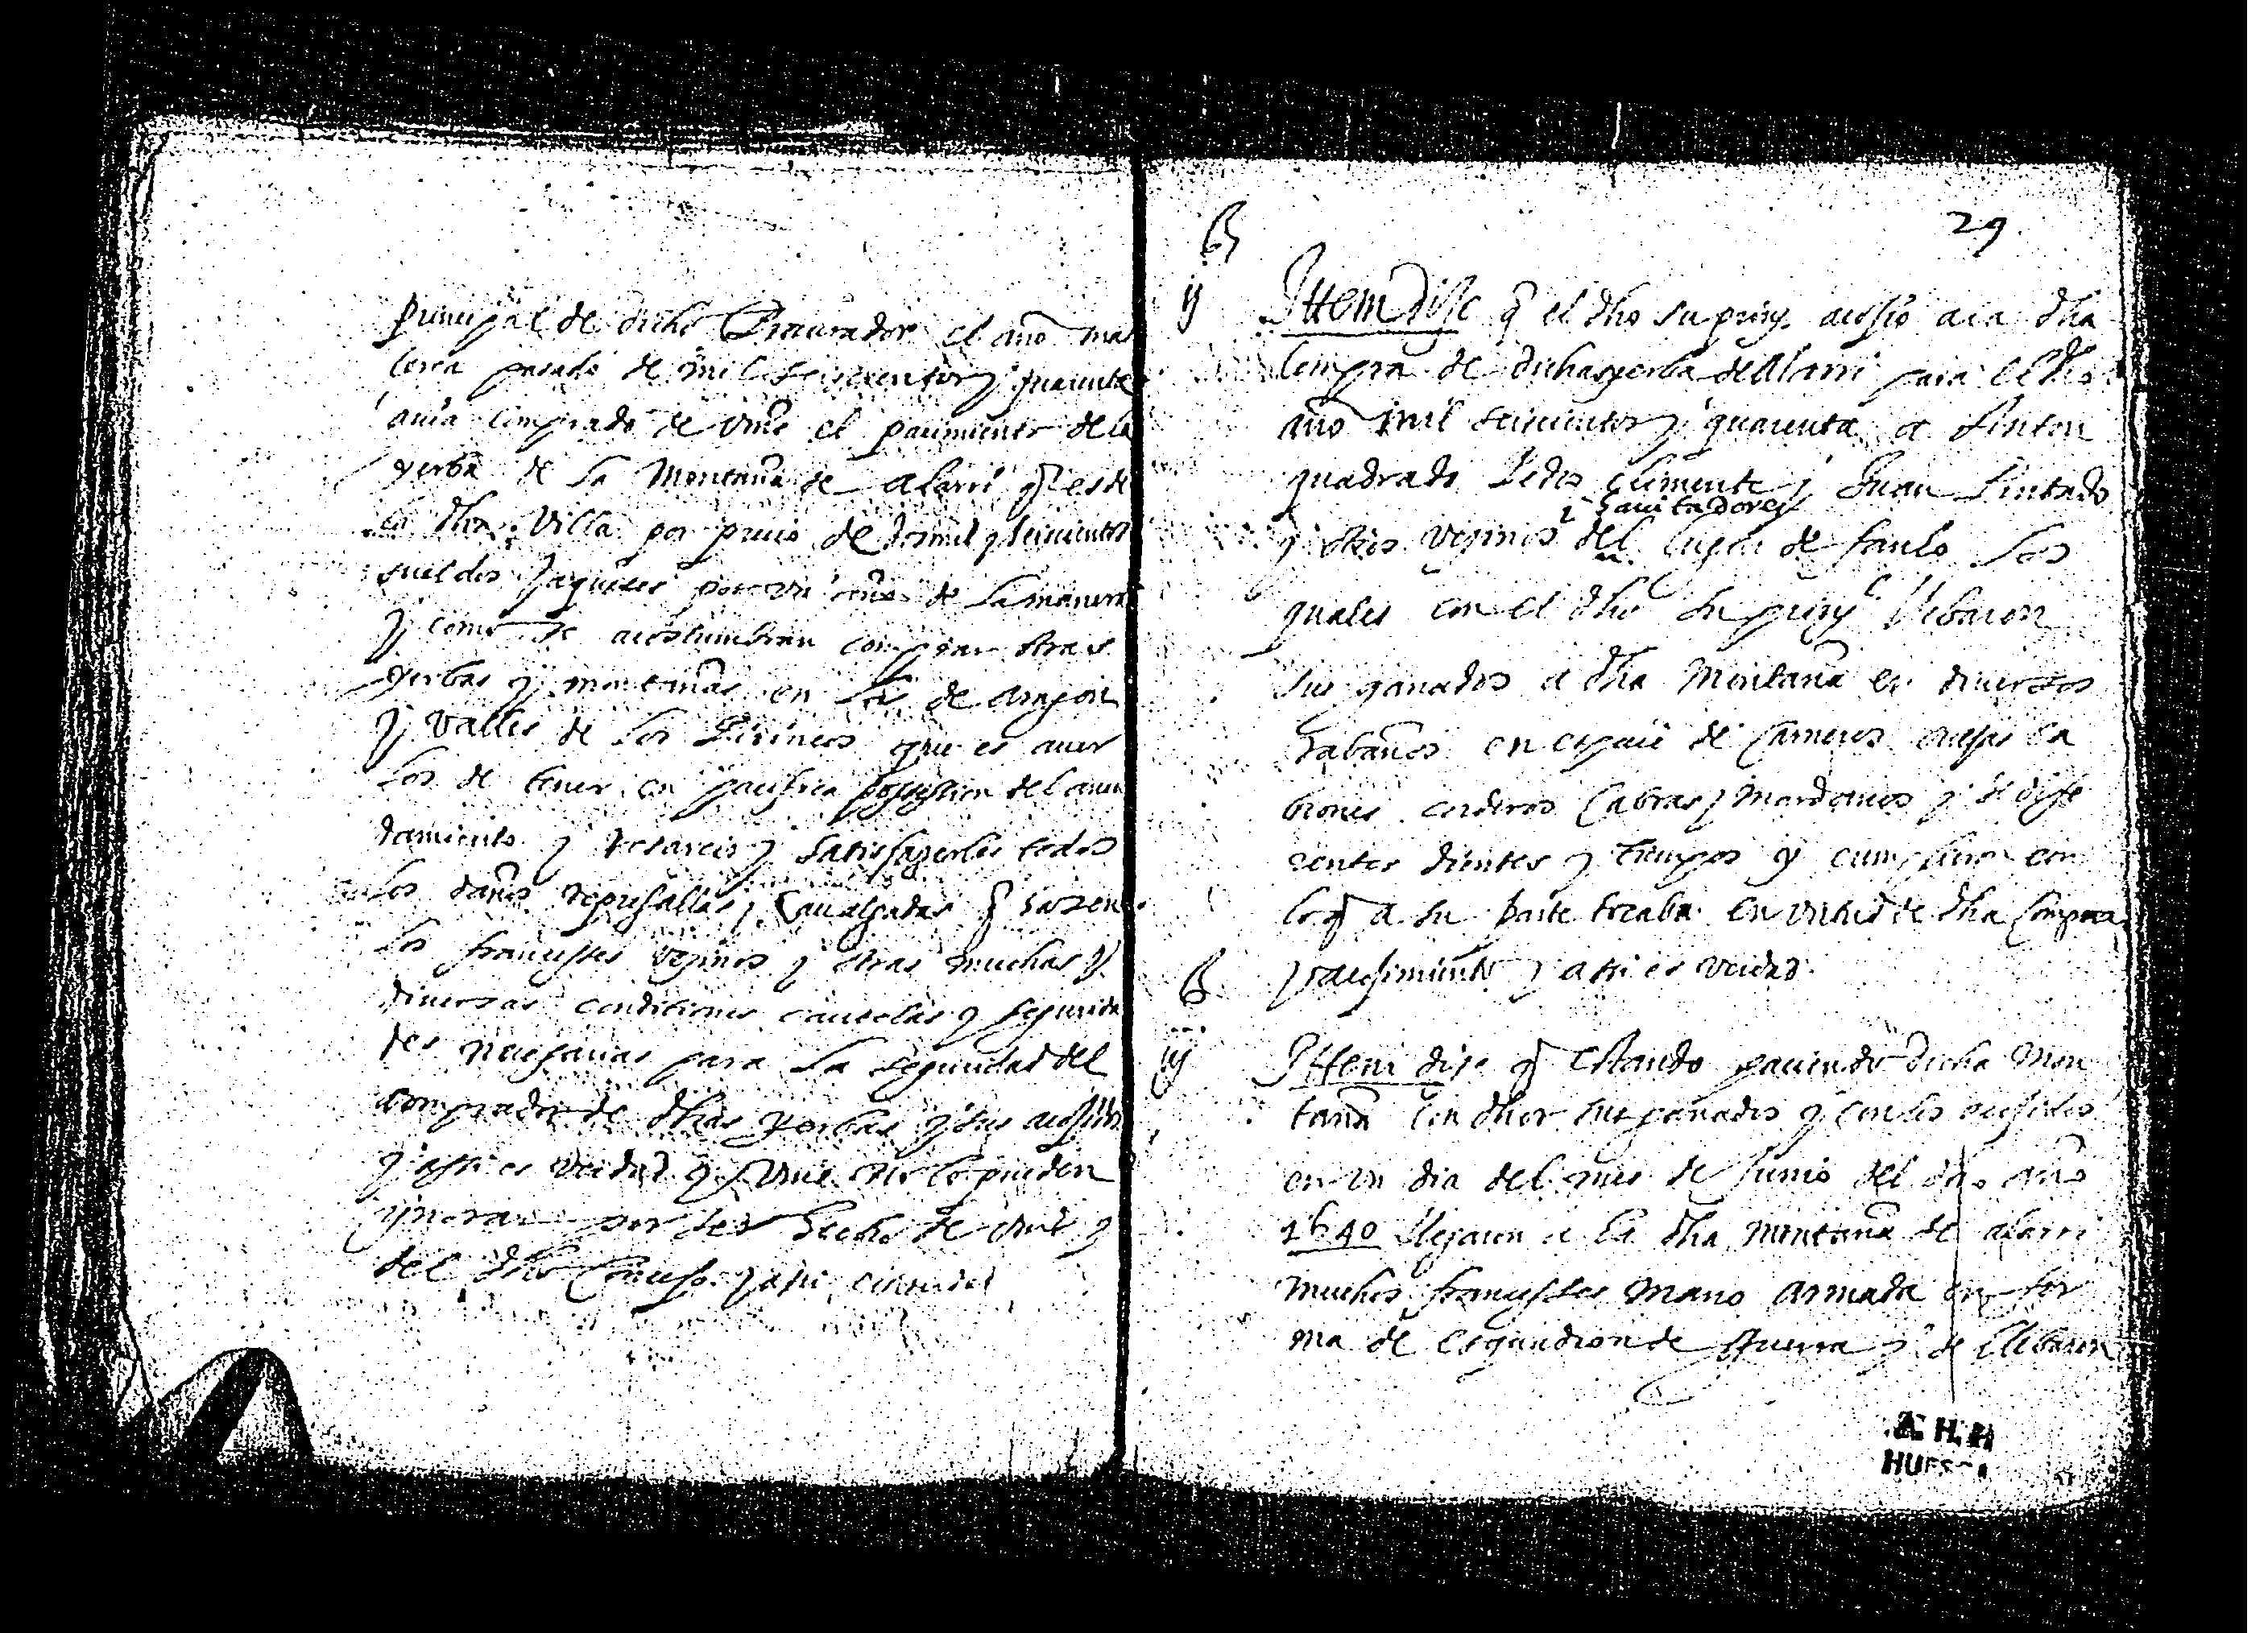 principal de dicho Procurador el año mas
cerca pasado de mil seiscientos y quarenta
auia comprado de Vms el pacimiento de la
yerba de la Montaña de alarri q̃ es de
la dha Villa por precio de dos mil y seiscientos
sueldos Jaqueses por un año de la manera
y como se acostumbran comprar otras
yerbas y montañas en los de aragon
y Valles de los Pirineos que es auer
los de tener en pacifica possession del arren
damiento y resarcir y satisfazerles todos
los daños represallas y Caualgadas q̃ hazen
los françesses vezinos y otras muchas y
diuersas condiciones cautelas y segurida
des neçesarias para la seguridad del
comprador de dhas yerbas y sus
y assi es verdad y Vms no lo pueden
ynorar por ser hecho de Vms y
del dho Consejo y assi es verdad
29
ij Ittem dize q̃ el dho su prinˡ acojio a la dha
compra de dichas yerba de Alarri para el dho
año mil seiscientos y quarenta a Anton
quadrado Pedro Climente y Juan Pintado
y hauitadores
y otros vezinos del lugar de fanlo los
quales con el dho su prinˡ llebaron
sus ganados a dha Montaña en diuersos
rabaños en especie de Carneros ouejas ca
brones corderos Cabras y mardanos y de dife
rentes dientes y tiempos y cumplieron con
lo q̃ a su parte tocaba en virtud de dha Compra
y acojimiento y assi es verdad.
iij Ittem dize q̃ estando paciendo dicha Mon
taña con dhos sus ganados y con los acojidos
en un dia del mes de Junio del dho año
1640 llegaron a la dha montaña de alarri
muchos françesses mano armada en for
ma de esquadron de Guerra y se llebaron
A. H. P.
HUESCA